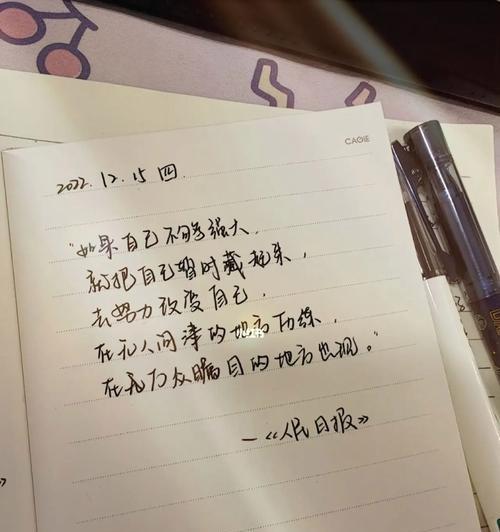 CAGIE
2022.12.15 四.
"如果自己不够强大,
就把自己暂时藏起来,
去努力改变自己,
在无人问津的地方历练,
在万众瞩目的地方出现。"
—《人民日报》